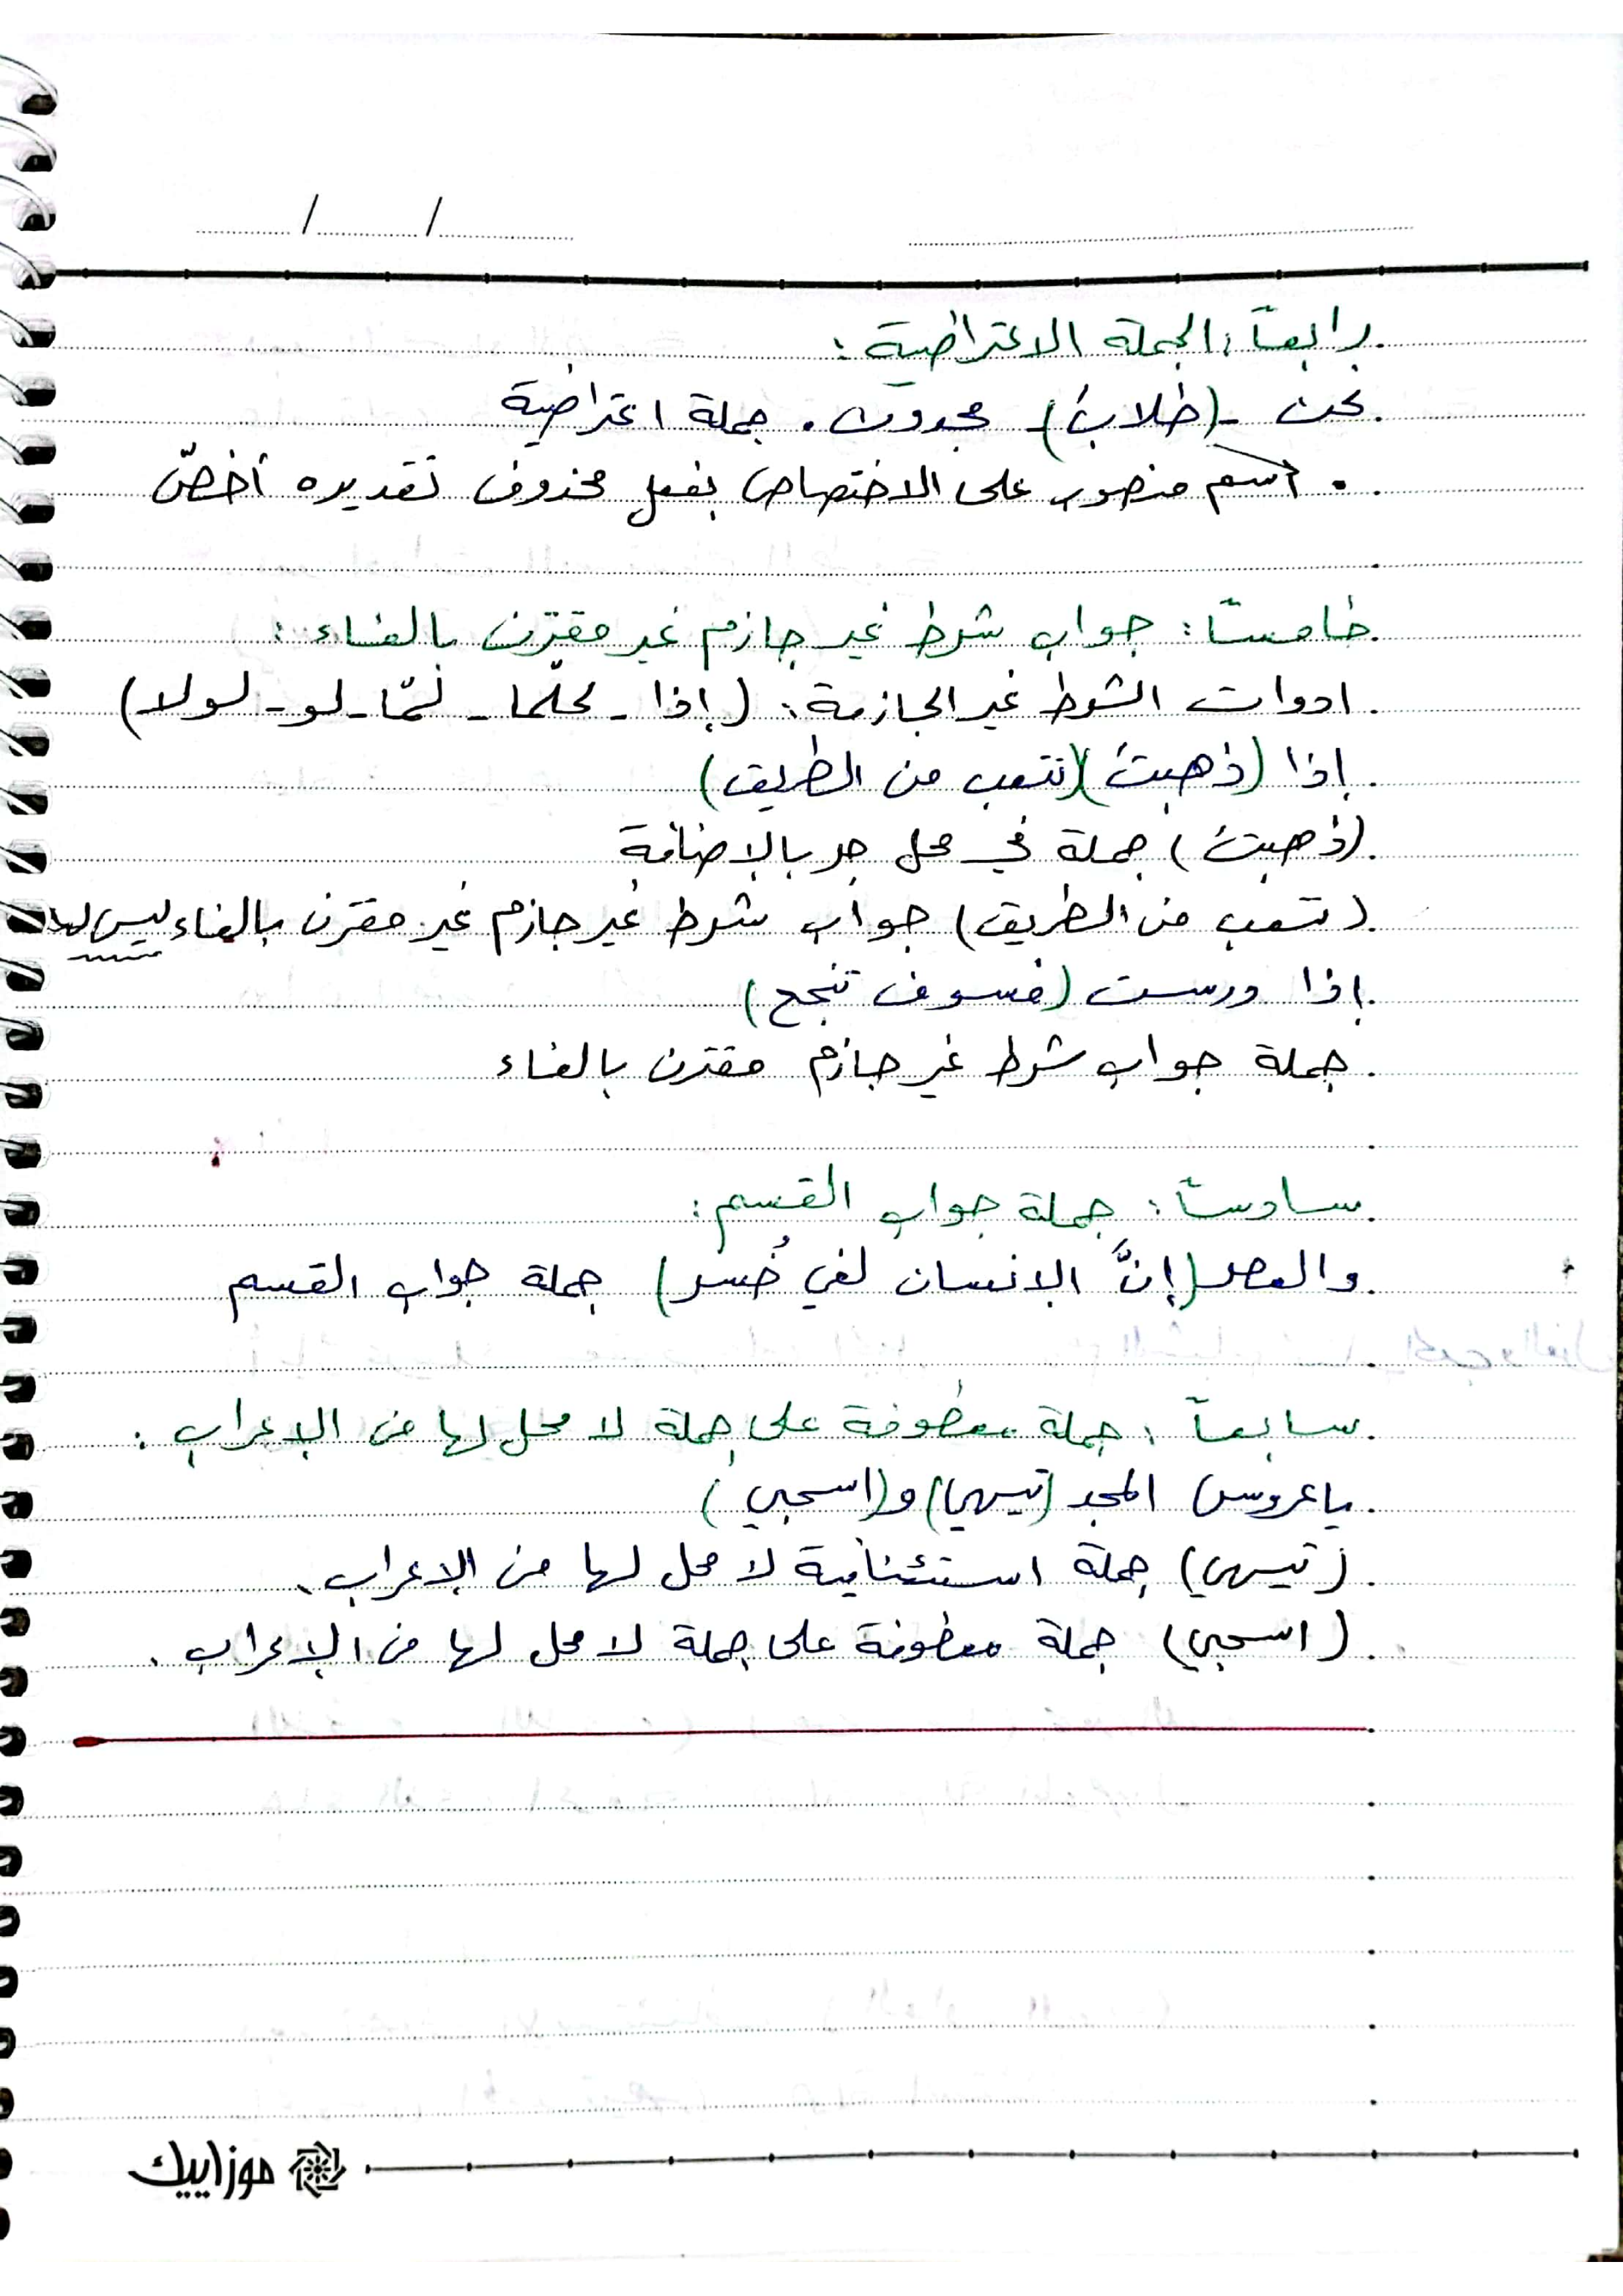 رابعاً: الجملة الاعتراضية:
نحن -(طلابَ)- مجدون. جملة اعتراضية
اسم منصوب على الاختصاص بفعل محذوف تقديره أخصّ
خامساً: جواب شرط غير جازم غير مقترن بالفاء:
ادوات الشرط غير الجازمة: (إذا - كلّما - لمّا - لو - لولا)
إذا (ذهبتَ)(تتعب من الطريق)
(ذهبتَ) جملة في محل جر بالإضافة
(تتعب من الطريق) جواب شرط غير جازم غير مقترن بالفاء ليس لها
إذا درست (فسوف تنجح)
جملة جواب شرط غير جازم مقترن بالفاء
سادساً: جملة جواب القسم:
والعصر (إنَّ الإنسان لفي خُسر) جملة جواب القسم
سابعاً: جملة معطوفة على جملة لا محل لها من الإعراب:
يا عروس المجد (تيهي) و(اسحبي)
(تيهي) جملة استئنافية لا محل لها من الإعراب.
(اسحبي) جملة معطوفة على جملة لا محل لها من الإعراب.
موزاييك